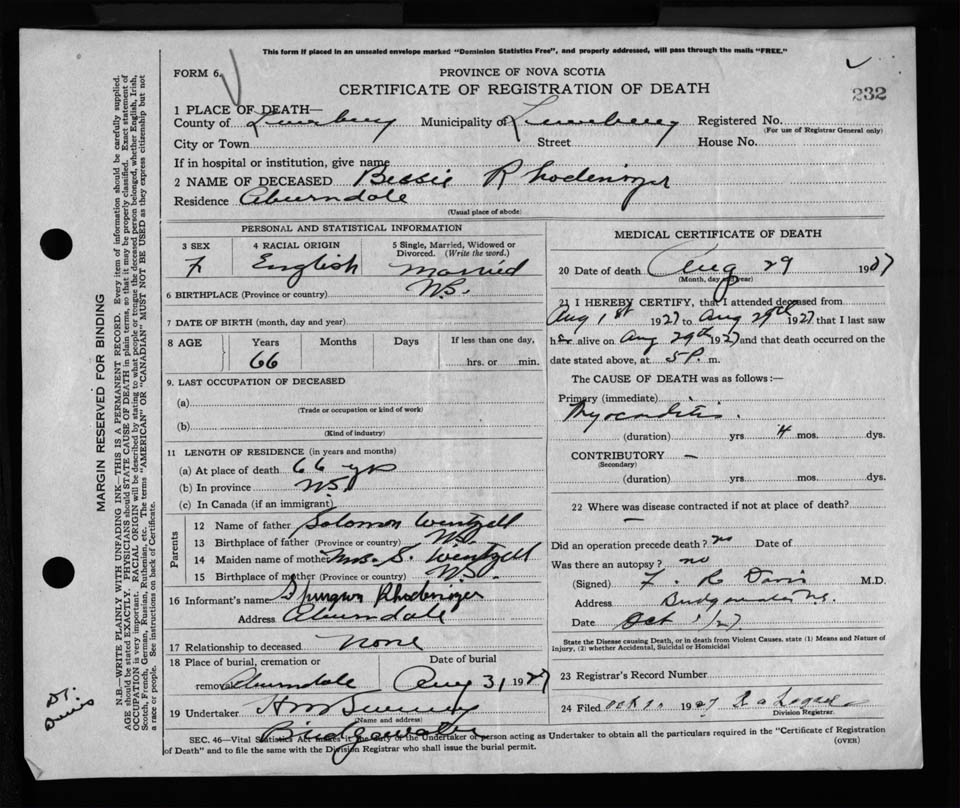 This form if placed in an unsealed envelope marked "Dominion Statistics Free", and properly addressed, will pass through the mails "FREE."
FORM 6.
PROVINCE OF NOVA SCOTIA
CERTIFICATE OF REGISTRATION OF DEATH
232
1 PLACE OF DEATH—
County of Lunenburg Municipality of Lunenburg Registered No.
(For use of Registrar General only)
City or Town Street House No.
If in hospital or institution, give name
2 NAME OF DECEASED Bessie Rhodenizer
Residence Auburndale
(Usual place of abode)
PERSONAL AND STATISTICAL INFORMATION
3 SEX 4 RACIAL ORIGIN 5 Single, Married, Widowed or Divorced. (Write the word.)
F English Married
6 BIRTHPLACE (Province or country) N.S.
7 DATE OF BIRTH (month, day and year)
8 AGE Years Months Days If less than one day,
66 hrs. or min.
9. LAST OCCUPATION OF DECEASED
(a)
(Trade or occupation or kind of work)
(b)
(Kind of industry)
11 LENGTH OF RESIDENCE (in years and months)
(a) At place of death 66 yrs
(b) In province N.S.
(c) In Canada (if an immigrant)
Parents
12 Name of father Solomon Wentzell
13 Birthplace of father (Province or country) N.S.
14 Maiden name of mother Mrs. S. Wentzell
15 Birthplace of mother (Province or country) N.S.
16 Informant's name Spurgeon Rhodenizer
Address Auburndale
17 Relationship to deceased None
18 Place of burial, cremation or Date of burial
removal Auburndale Aug 31 1927
19 Undertaker
(Name and address)
Bridgewater
MEDICAL CERTIFICATE OF DEATH
20 Date of death Aug 29 1927
(Month, day and year)
21 I HEREBY CERTIFY, that I attended deceased from
Aug 1st 1927 to Aug 29th 1927 that I last saw
her alive on Aug 29th 1927 and that death occurred on the
date stated above, at 5 P. m.
The CAUSE OF DEATH was as follows:—
Primary (immediate)
Myocarditis.
(duration) yrs 4 mos. dys.
CONTRIBUTORY –
(Secondary)
(duration) yrs. mos. dys.
22 Where was disease contracted if not at place of death?
—
Did an operation precede death? no Date of
Was there an autopsy? no
(Signed) F. R. Davis M.D.
Address Bridgewater N.S.
Date Oct 1/27
State the Disease causing Death, or in death from Violent Causes. state (1) Means and Nature of
Injury, (2) whether Accidental, Suicidal or Homicidal
23 Registrar's Record Number
24 Filed Oct 1927
Division Registrar.
SEC. 46—Vital Statistics Act makes it the duty of the Undertaker or person acting as Undertaker to obtain all the particulars required in the "Certificate of Registration
of Death" and to file the same with the Division Registrar who shall issue the burial permit.
(OVER)
MARGIN RESERVED FOR BINDING
N.B.—WRITE PLAINLY WITH UNFADING INK—THIS IS A PERMANENT RECORD. Every item of information should be carefully supplied.
AGE should be stated EXACTLY. PHYSICIANS should STATE CAUSE OF DEATH in plain terms, so that it may be properly classified. Exact statement of
OCCUPATION is very important. RACIAL ORIGIN will be described by stating to what people or tongue the deceased person belonged, whether English, Irish,
Scotch, French, German, Russian, Ruthenian, etc. The terms "AMERICAN" OR "CANADIAN" MUST NOT BE USED as they express citizenship but not
a race or people. See instructions on back of Certificate.
Dr.
Davis